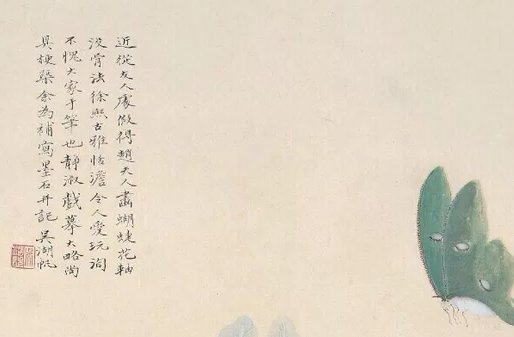 近從友人處假得趙夫人畫蝴蜨花軸
沒骨法徐熙古雅恬澹令人愛玩洵
不愧大家手筆也靜淑戲摹大略尚
具梗槩余為補寫墨石并記 吳湖帆